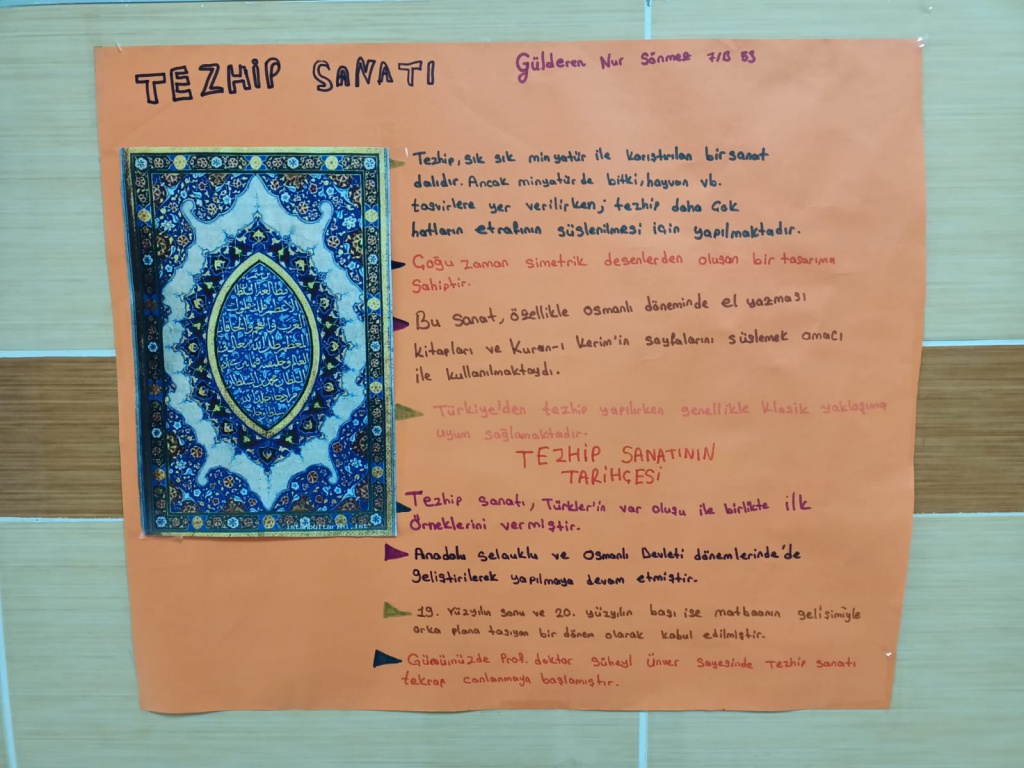 TEZHİP SANATI
Gülderen Nur Sönmez 7/B 53
Tezhip, sık sık minyatür ile karıştırılan bir sanat
dalıdır. Ancak minyatür de bitki, hayvan vb.
tasvirlere yer verilirken; tezhip daha çok
hatların etrafının süslenilmesi için yapılmaktadır.
Çoğu zaman simetrik desenlerden oluşan bir tasarıma
sahiptir.
Bu sanat, özellikle Osmanlı döneminde el yazması
kitapları ve Kuran-ı Kerim'in sayfalarını süslemek amacı
ile kullanılmaktaydı.
Türkiye'den tezhip yapılırken genellikle klasik yaklaşıma
uyum sağlamaktadır.
TEZHİP SANATININ
TARİHÇESİ
Tezhip sanatı, Türkler'in var oluşu ile birlikte ilk
örneklerini vermiştir.
Anadolu Selçuklu ve Osmanlı Devleti dönemlerinde'de
geliştirilerek yapılmaya devam etmiştir.
19. Yüzyılın sonu ve 20. yüzyılın başı ise matbaanın gelişimiyle
arka plana taşıyan bir dönem olarak kabul edilmiştir.
Günümüzde Prof. doktor Süheyl Ünver sayesinde Tezhip sanatı
tekrar canlanmaya başlamıştır.